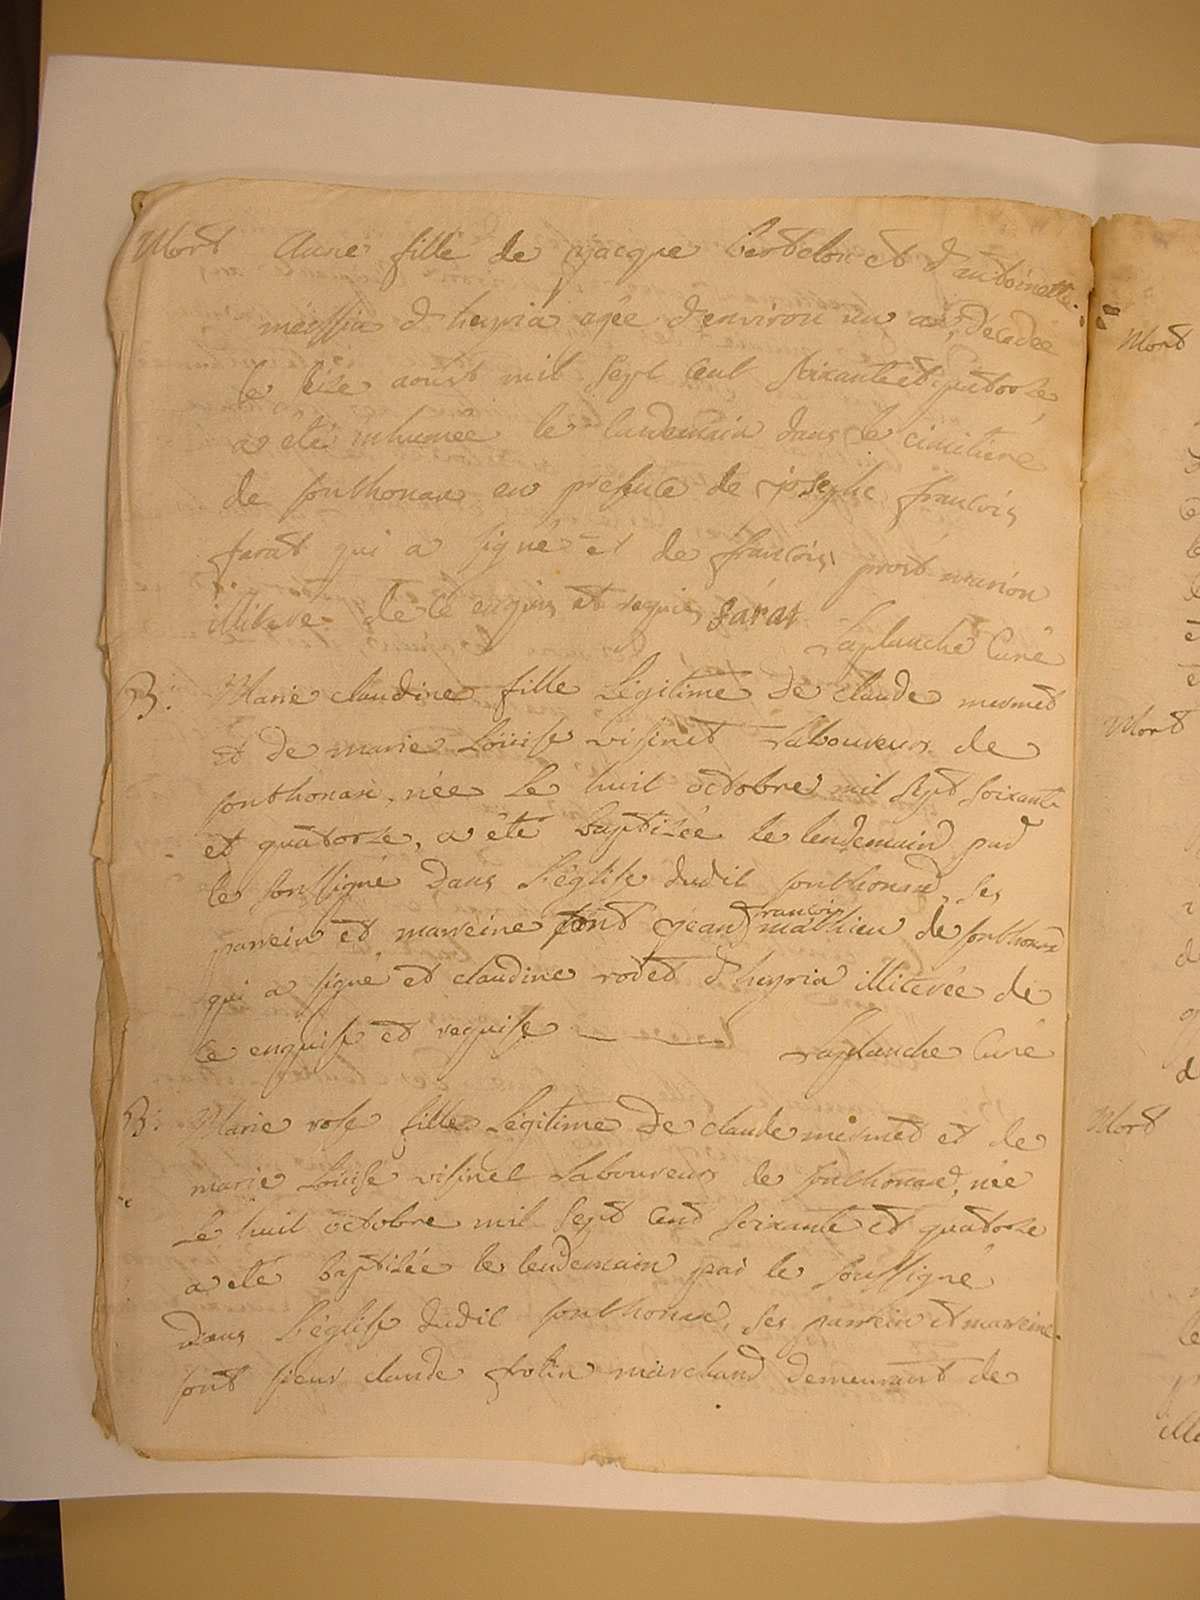 Mort Anne fille de jacque bertelon et d'antoinette
messia d'heyria agée d'environ un an, décedée
le seze aoust mil sept cent soixante et quatorze,
a été inhumée le landemain dans le cimitiere
de sonthonax en presence de joseph françois
farat qui a signé et de françois prost marion
illiteré de ce enquis et requis farat Laplanche Curé
B: Marie claudine fille Légitime de claude mermet
et de marie Loüise visinet Laboureur de
sonthonax, née Le huit octobre mil sept soixante
et quatorze, a été baptizée le lendemain par
le soussigné dans L'église dudit sonthonax, ses
parrein et marreine sont jean françois mathieu de sonthonax
qui a signé et claudine rodet d'heyria illiterée de
ce enquise et requise Laplanche Curé
B: Marie rose fille Légitime de claude mermet et de
marie Loüise visinet Laboureur de sonthonax, née
Le huit octobre mil sept cent soixante et quatorze
a été baptizée le lendemain par le soussigné
dans L'église dudit sonthonax, ses parrein et marreine
sont sieur claude marchand demeurant de
Mort
Mort
Mort